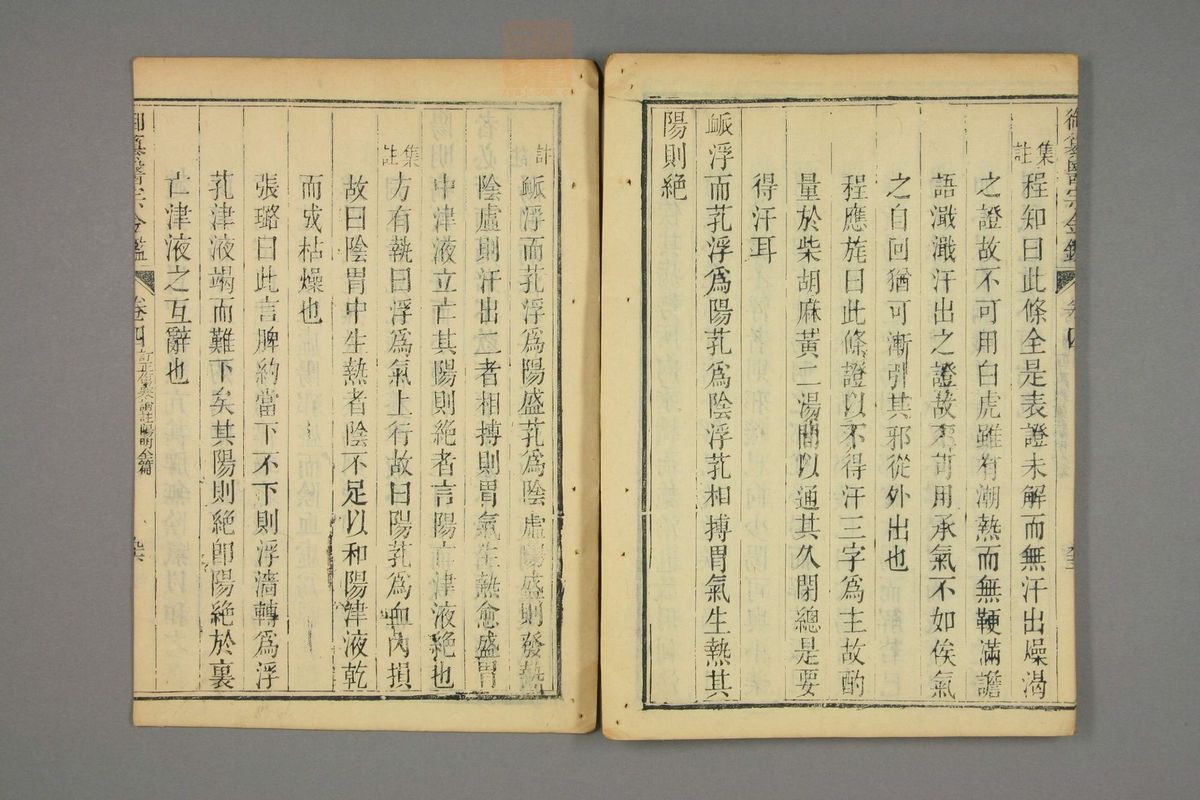 御纂醫宗金鑑
集註
程知曰此條全是表證未解而無汗出燥渴
之證故不可用白虎雖有潮熱而無鞕滿譫
語濈濈汗出之證故不可用承氣不如俟氣
之自回猶可漸引其邪從外出也
程應旄曰此條證以不得汗三字爲主故酌
量於柴胡麻黃二湯間以通其久閉總是要
得汗耳
衇浮而芤浮爲陽芤爲陰浮芤相搏胃氣生熱其
陽則絶
註
衇浮而芤浮爲陽盛芤爲陰虛陽盛則發熱
陰虛則汗出二者相搏則胃氣生熱愈盛胃
中津液立亡其陽則絶者言陽亡津液絶也
集註
方有執曰浮爲氣上行故曰陽芤爲血內損
故曰陰胃中生熱者陰不足以和陽津液乾
而成枯燥也
張璐曰此言脾約當下不下則浮濇轉爲浮
芤津液竭而難下矣其陽則絶卽陽絶於裏
亡津液之互辭也
御纂醫宗金鑑
卷四
訂正傷寒論註陽明全篇